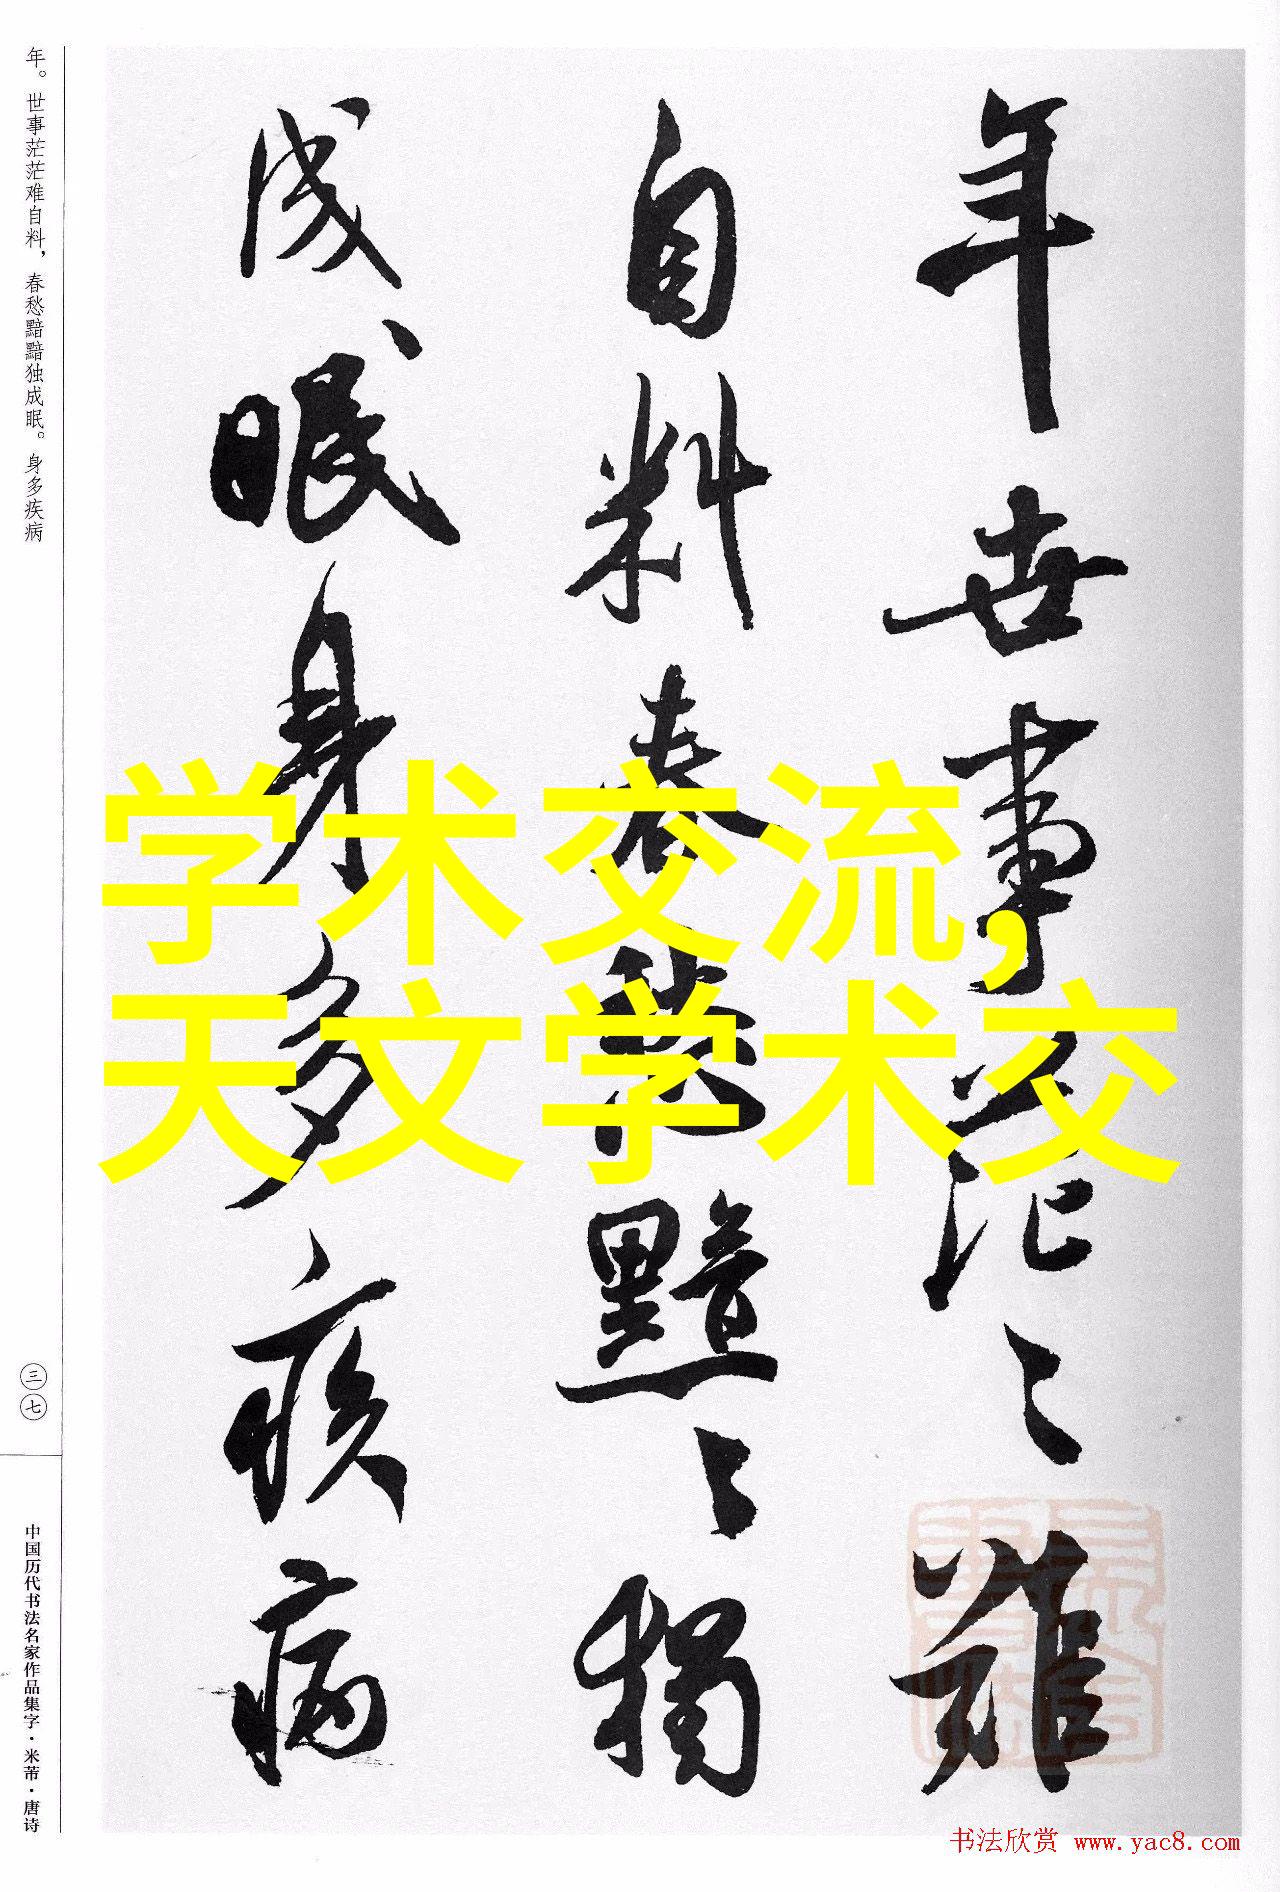 年世事茫〻难
自料春愁黯〻獨
成眠身多疾病
年。世事茫茫难自料，春愁黯黯独成眠。身多疾病
三七
中国历代书法名家作品集字·米芾·唐诗
学术交流,
天文学术交
书法欣赏 www.yac8.com